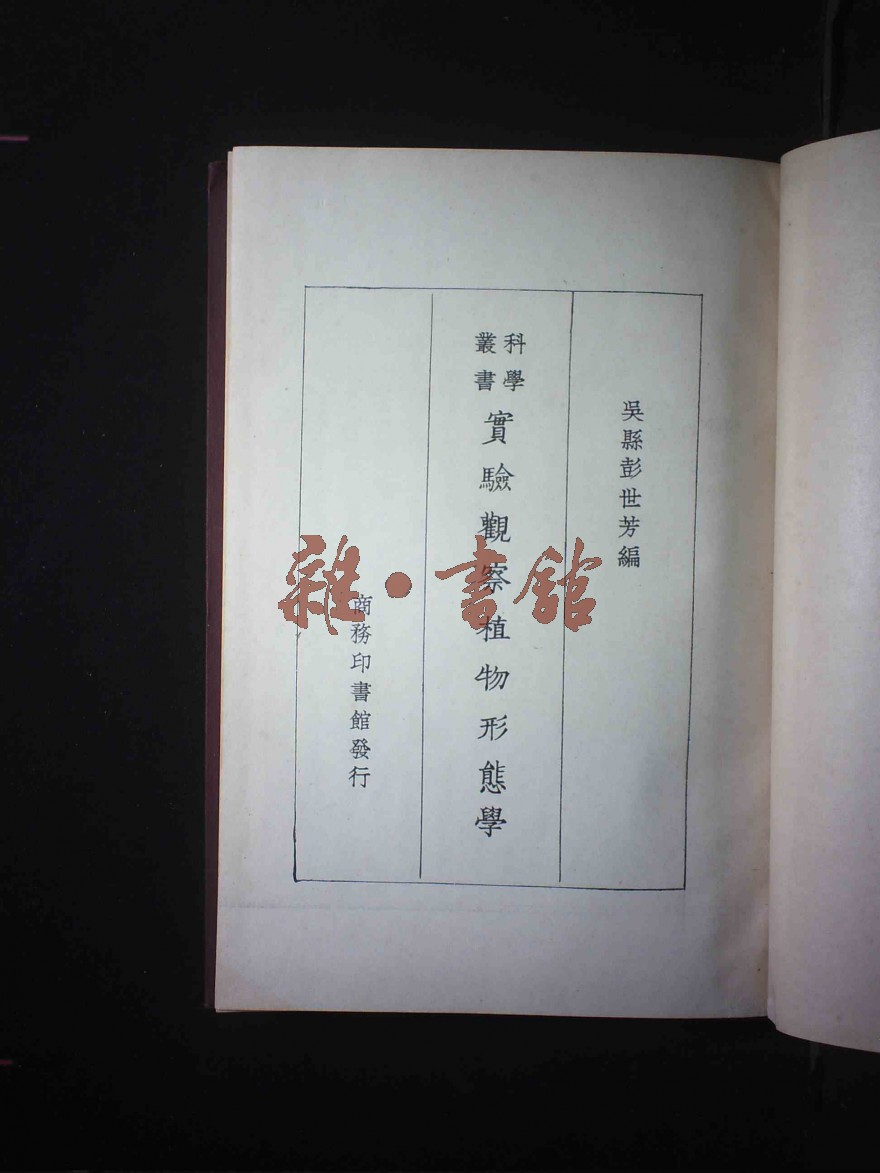 吳縣彭世芳編
科學
叢書
實驗觀察植物形態學
商務印書館發行
雜·書館